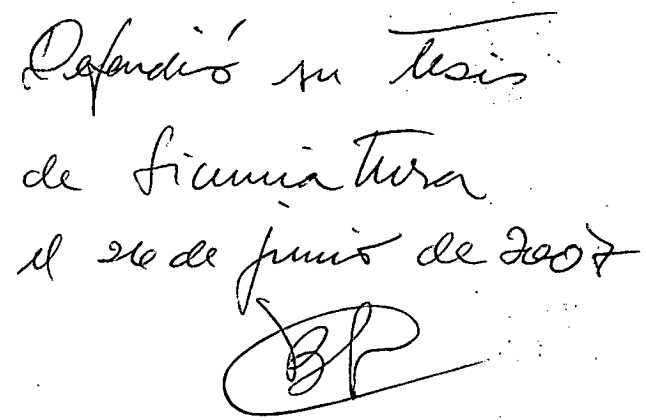 Defendió su Tesis
de Licenciatura
el 26 de junio de 2007